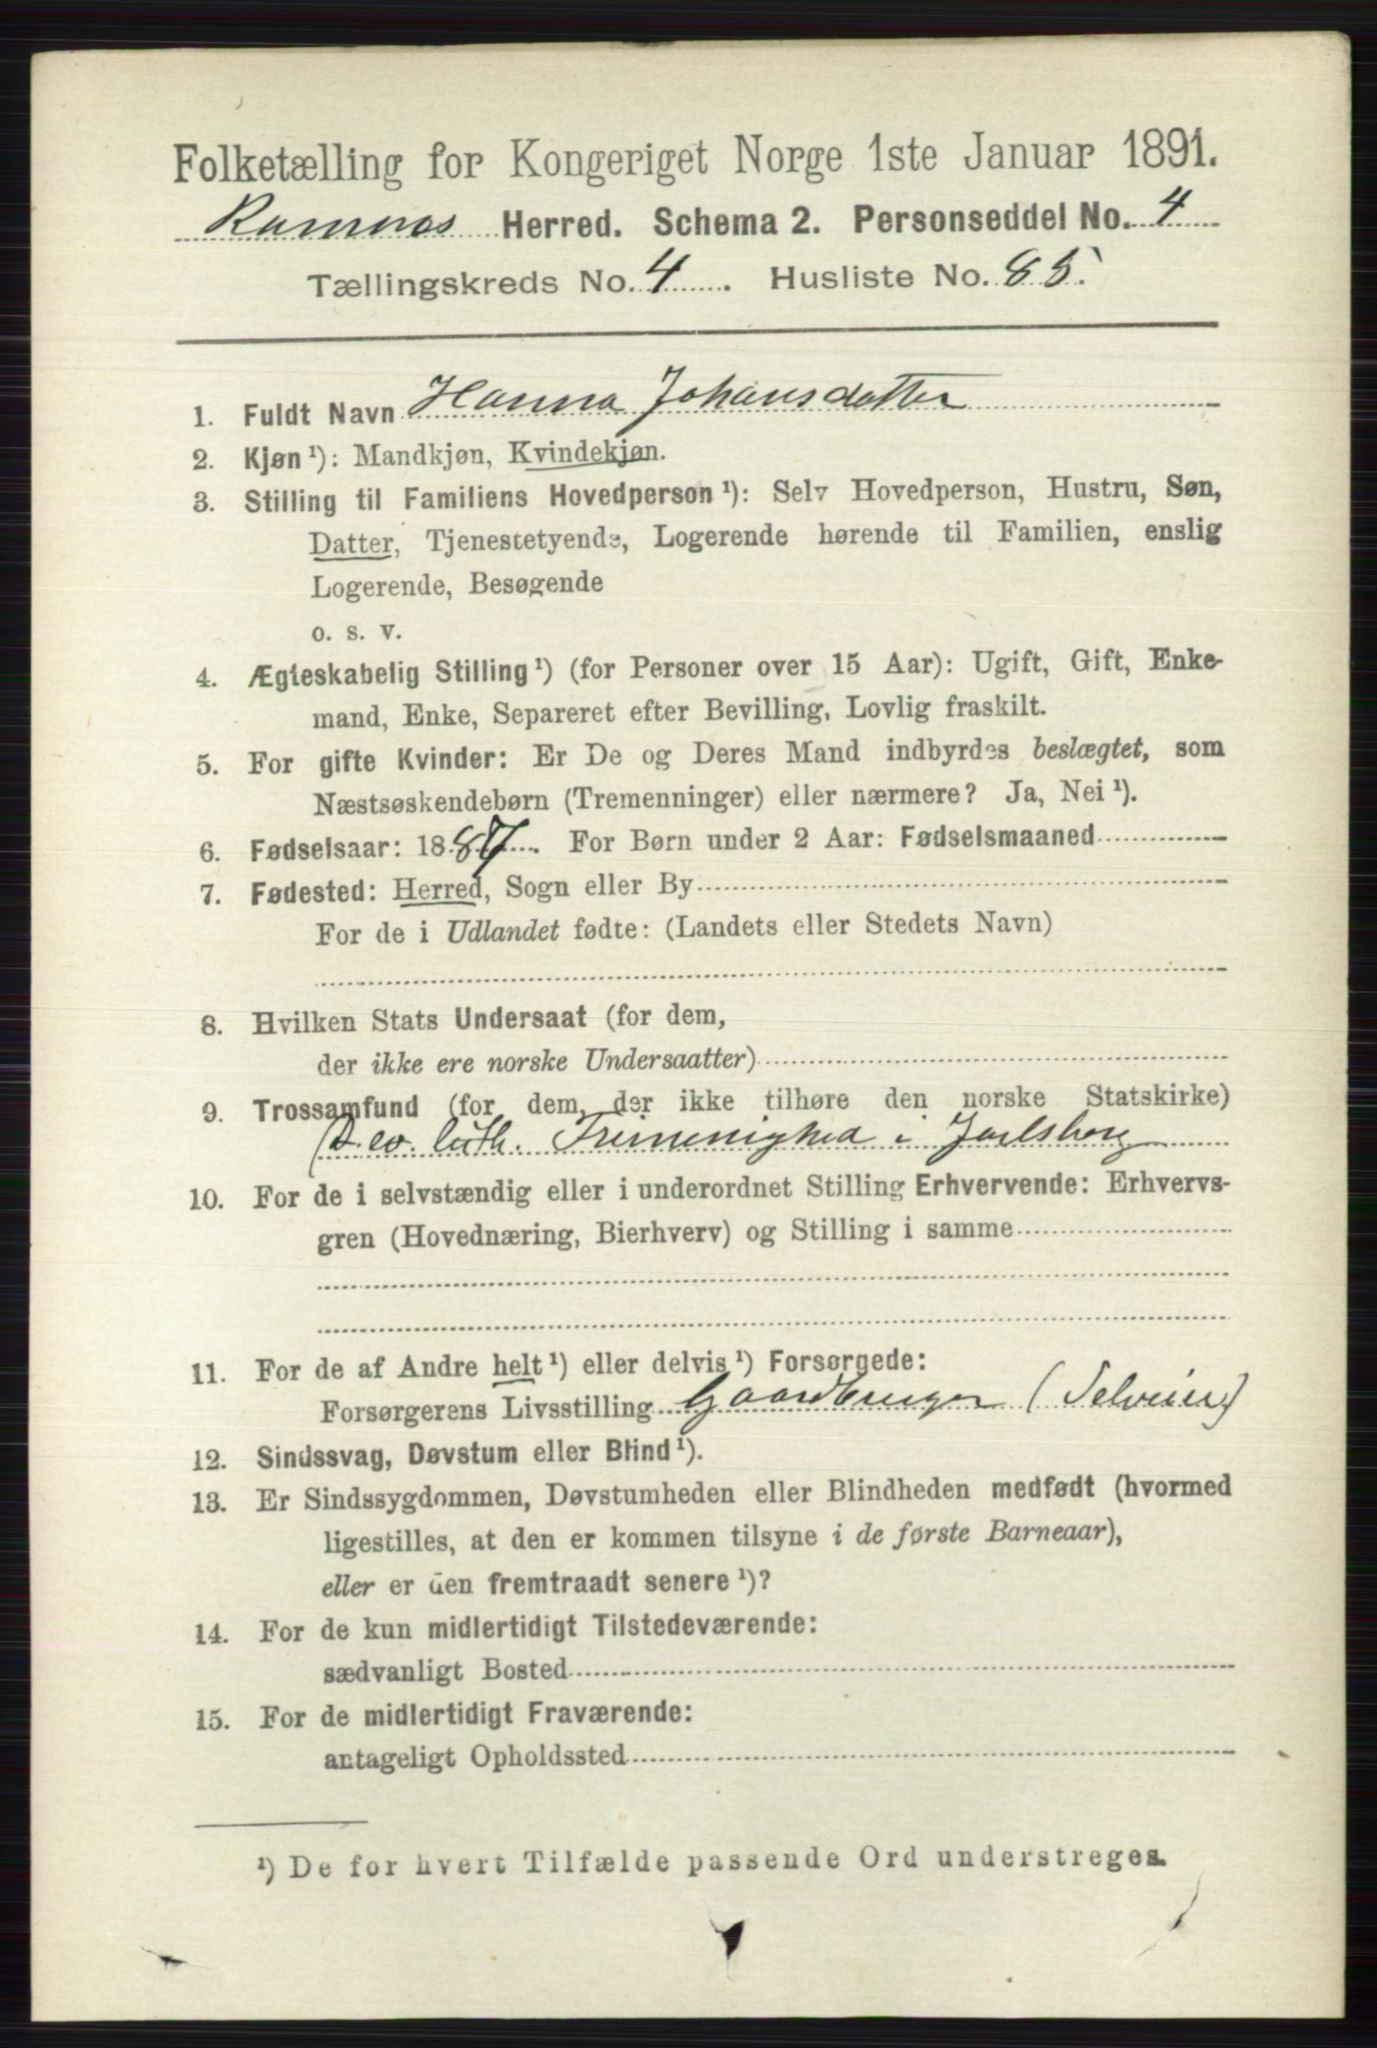 Folketælling for Kongeriget Norge 1ste Januar 1891.
Ramnæs Herred. Schema 2. Personseddel No. 4
Tællingskreds No. 4. Husliste No. 85.
1. Fuldt Navn Hanna Johansdatter
2. Kjøn ¹): Mandkjøn, Kvindekjøn.
3. Stilling til Familiens Hovedperson ¹): Selv Hovedperson, Hustru, Søn,
Datter, Tjenestetyende, Logerende hørende til Familien, enslig
Logerende, Besøgende
o. s. v.
4. Ægteskabelig Stilling ¹) (for Personer over 15 Aar): Ugift, Gift, Enke-
mand, Enke, Separeret efter Bevilling, Lovlig fraskilt.
5. For gifte Kvinder: Er De og Deres Mand indbyrdes beslægtet, som
Næstsøskendebørn (Tremenninger) eller nærmere? Ja, Nei ¹).
6. Fødselsaar: 1887. For Børn under 2 Aar: Fødselsmaaned
7. Fødested: Herred, Sogn eller By
For de i Udlandet fødte: (Landets eller Stedets Navn)
8. Hvilken Stats Undersaat (for dem,
der ikke ere norske Undersaatter)
9. Trossamfund (for dem, der ikke tilhøre den norske Statskirke)
(D. ev. luth. Frimenighed i Jarlsberg
10. For de i selvstændig eller i underordnet Stilling Erhvervende: Erhvervs-
gren (Hovednæring, Bierhverv) og Stilling i samme
11. For de af Andre helt ¹) eller delvis ¹) Forsørgede:
Forsørgerens Livsstilling Gaardbruger (Selveier)
12. Sindssvag, Døvstum eller Blind ¹).
13. Er Sindssygdommen, Døvstumheden eller Blindheden medfødt (hvormed
ligestilles, at den er kommen tilsyne i de første Barneaar),
eller er den fremtraadt senere ¹)?
14. For de kun midlertidigt Tilstedeværende:
sædvanligt Bosted
15. For de midlertidigt Fraværende:
antageligt Opholdssted
¹) De for hvert Tilfælde passende Ord understreges.